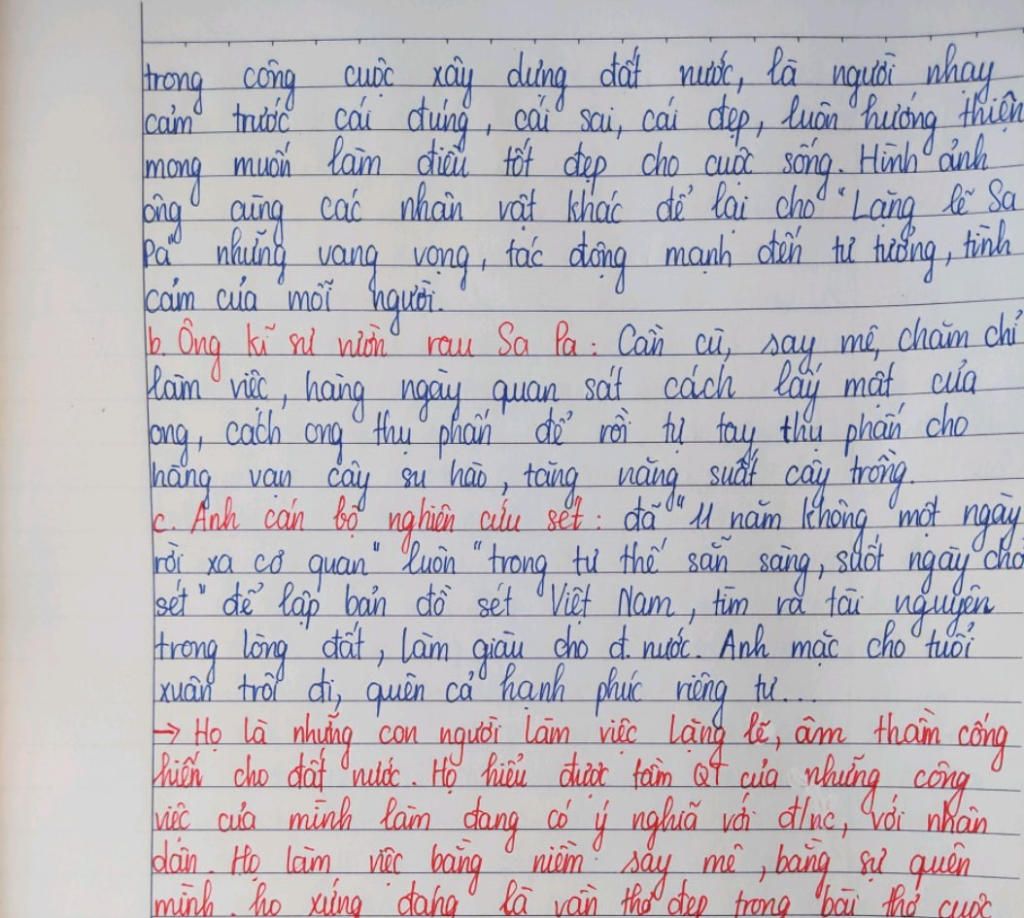 trong công cuộc xây dựng đất nước, là người nhạy
cảm trước cái đúng, cái sai, cái đẹp, luôn hướng thiện
mong muốn làm điều tốt đẹp cho cuộc sống. Hình ảnh
ông cùng các nhân vật khác để lại cho "Lặng lẽ Sa
Pa" những vang vọng, tác động mạnh đến tư tưởng, tình
cảm của mỗi người.
b. Ông kĩ sư vườn rau Sa Pa: Cần cù, say mê, chăm chỉ
làm việc, hàng ngày quan sát cách lấy mật của
ong, cách ong thụ phấn để rồi tự tay thụ phấn cho
hàng vạn cây su hào, tăng năng suất cây trồng.
c. Anh cán bộ nghiên cứu sét: đã "11 năm không một ngày
rời xa cơ quan" luôn "trong tư thế sẵn sàng, suốt ngày chờ
sét" để lập bản đồ sét Việt Nam, tìm ra tài nguyên
trong lòng đất, làm giàu cho đ.nước. Anh mặc cho tuổi
xuân trôi đi, quên cả hạnh phúc riêng tư...
→ Họ là những con người làm việc lặng lẽ, âm thầm cống
hiến cho đất nước. Họ hiểu được tầm QT của những công
việc của mình làm đang có ý nghĩa với đ/nc, với nhân
dân. Họ làm việc bằng niềm say mê, bằng sự quên
mình, họ xứng đáng là vần thơ đẹp trong bài thơ cuộc